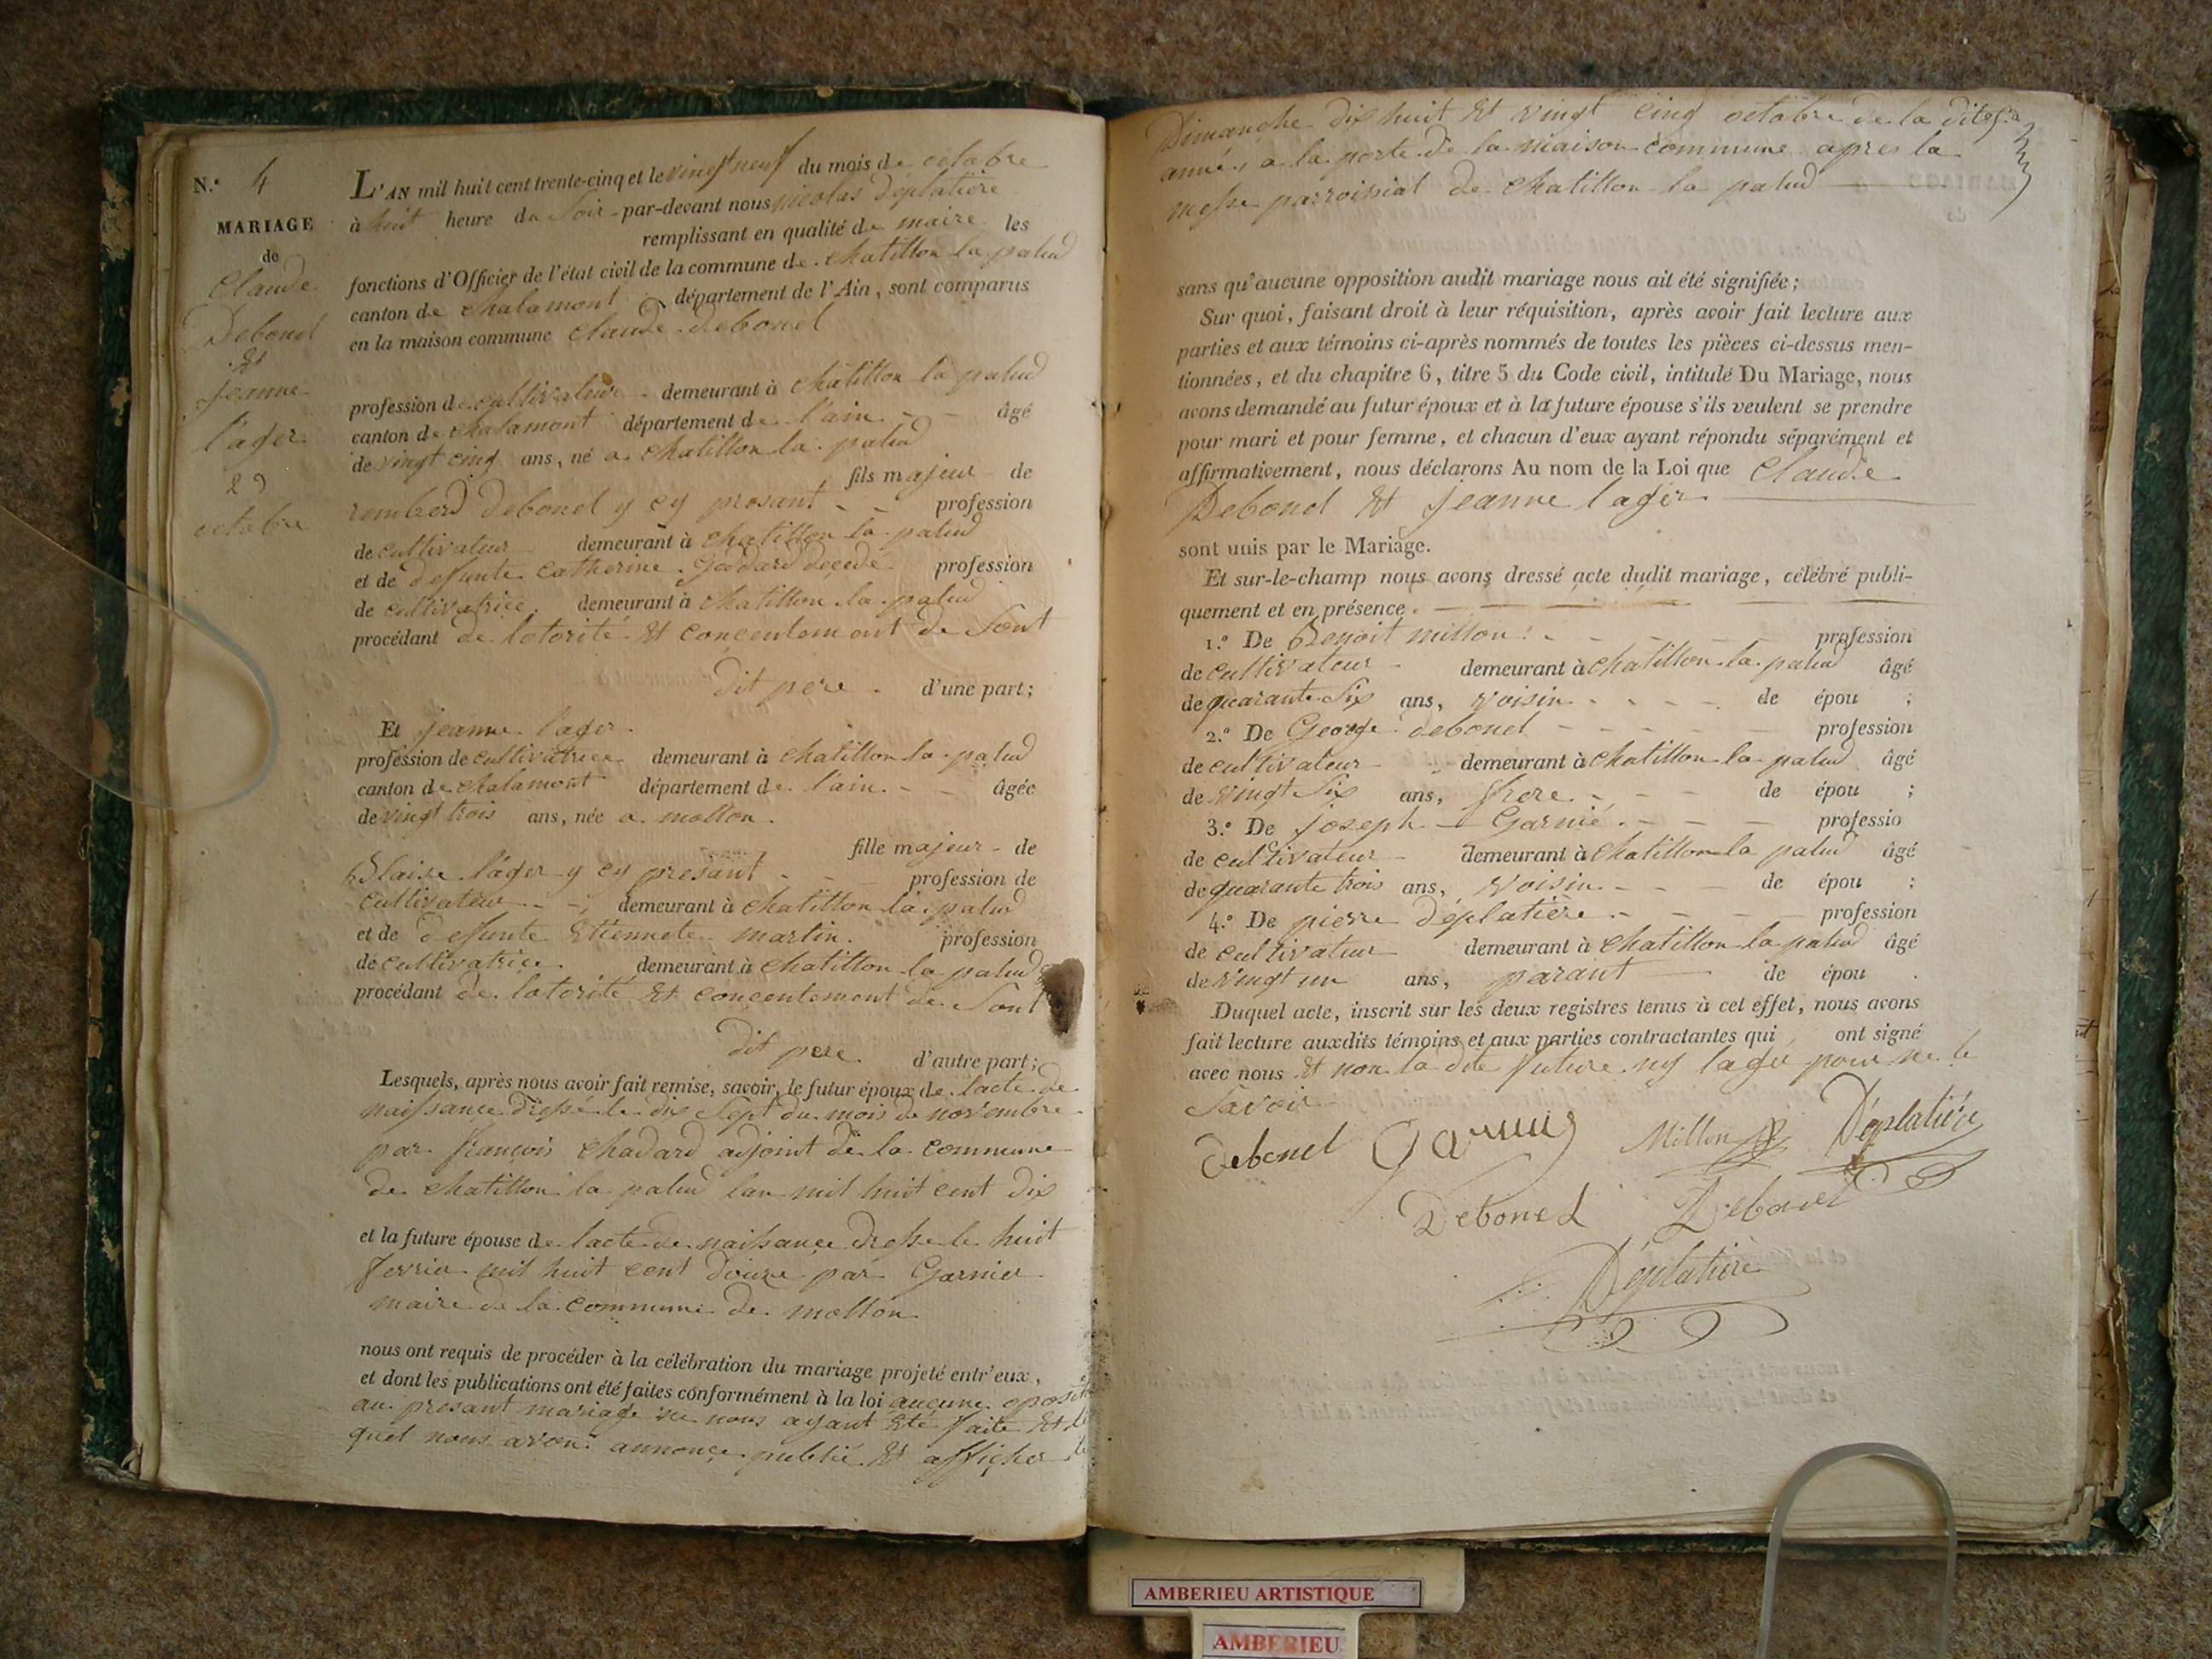 N.° 4
MARIAGE
de
Claude
Debonel
Et
jeanne
lager
29
octobre
L'AN mil huit cent trente-cinq et le vingt neuf du mois de octobre
à huit heure du Soir par-devant nous nicolas Déplatière
remplissant en qualité de maire les
fonctions d'Officier de l'état civil de la commune de chatillon la palud
canton de chalamont département de l'Ain, sont comparus
en la maison commune claude debonel
profession de cultivateur demeurant à chatillon la palud
canton de chalamont département de l'ain âgé
de vingt cinq ans, né a chatillon la palud
fils majeur de
rembert Debonel y cy presant profession
de cultivateur demeurant à chatillon la palud
et de defunte catherine Godard décédé profession
de cultivatrice demeurant à chatillon la palud
procédant de lotorité Et concentement de Sont
dit pere d'une part;
Et jeanne lager
profession de cultivatrice demeurant à chatillon la palud
canton de chalamont département de l'ain âgée
de vingt trois ans, née a mollon
fille majeur de
Blaise lager y cy presant profession de
cultivateur demeurant à chatillon la palud
et de defunte Etiennete martin profession
de cultivatrice demeurant à chatillon la palud
procédant de lotorité Et concentement de Sont
dit pere d'autre part;
Lesquels, après nous avoir fait remise, savoir, le futur époux de lacte de
naissance dressé le dix Sept du mois de novembre
par françois chadard adjoint de la commune
de chatillon la palud lan mil huit cent dix
et la future épouse de lacte de naissance dressé le huit
fevrier mil huit cent douze par Garnier
maire de la commune de mollon
nous ont requis de procéder à la célébration du mariage projeté entr'eux,
et dont les publications ont été faites conformément à la loi aucune oposit
au presant mariage ne nous ayant Eté faite Et le
quel nous avons annonce publié Et afficher le
Dimanche dix huit Et vingt cinq octobre de la dite
année a la porte de la maison commune apres la
messe parroissial de chatillon la palud
sans qu'aucune opposition audit mariage nous ait été signifiée;
Sur quoi, faisant droit à leur réquisition, après avoir fait lecture aux
parties et aux témoins ci-après nommés de toutes les pièces ci-dessus men-
tionnées, et du chapitre 6, titre 5 du Code civil, intitulé Du Mariage, nous
avons demandé au futur époux et à la future épouse s'ils veulent se prendre
pour mari et pour femme, et chacun d'eux ayant répondu séparément et
affirmativement, nous déclarons Au nom de la Loi que Claude
Debonel Et jeanne lager
sont unis par le Mariage.
Et sur-le-champ nous avons dressé acte dudit mariage, célébré publi-
quement et en présence
1.° De Benoit millon profession
de cultivateur demeurant à chatillon la palud âgé
de quarante Six ans, voisin de épou ;
2.° De George debonel profession
de cultivateur demeurant à chatillon la palud âgé
de vingt Six ans, frere de épou ;
3.° De joseph Garnié professio
de cultivateur demeurant à chatillon la palud âgé
de quarante trois ans, voisin de épou ;
4.° De pierre déplatière profession
de cultivateur demeurant à chatillon la palud âgé
de vingt un ans, parant de épou .
Duquel acte, inscrit sur les deux registres tenus à cet effet, nous avons
fait lecture auxdits témoins et aux parties contractantes qui ont signé
avec nous Et non la dite future ny lager pour ne le
Savoir
debonel Garnié Millon Déplatière
Debonel Debonel
Déplatière
AMBERIEU ARTISTIQUE
AMBERIEU